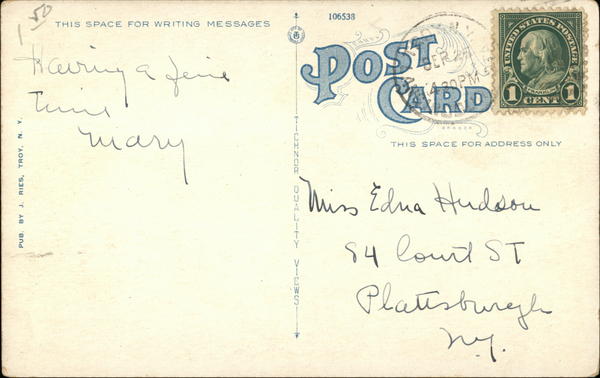 1 50
THIS SPACE FOR WRITING MESSAGES
Having a fine
time
Mary
PUB. BY J. RIES, TROY, N. Y.
TICHNOR QUALITY VIEWS
106538
POST
CARD
SEP
4-30 PM
UNITED STATES POSTAGE
FRANKLIN
1 CENT 1
THIS SPACE FOR ADDRESS ONLY
Miss Edna Hudson
84 Court ST
Plattsburgh
N.Y.